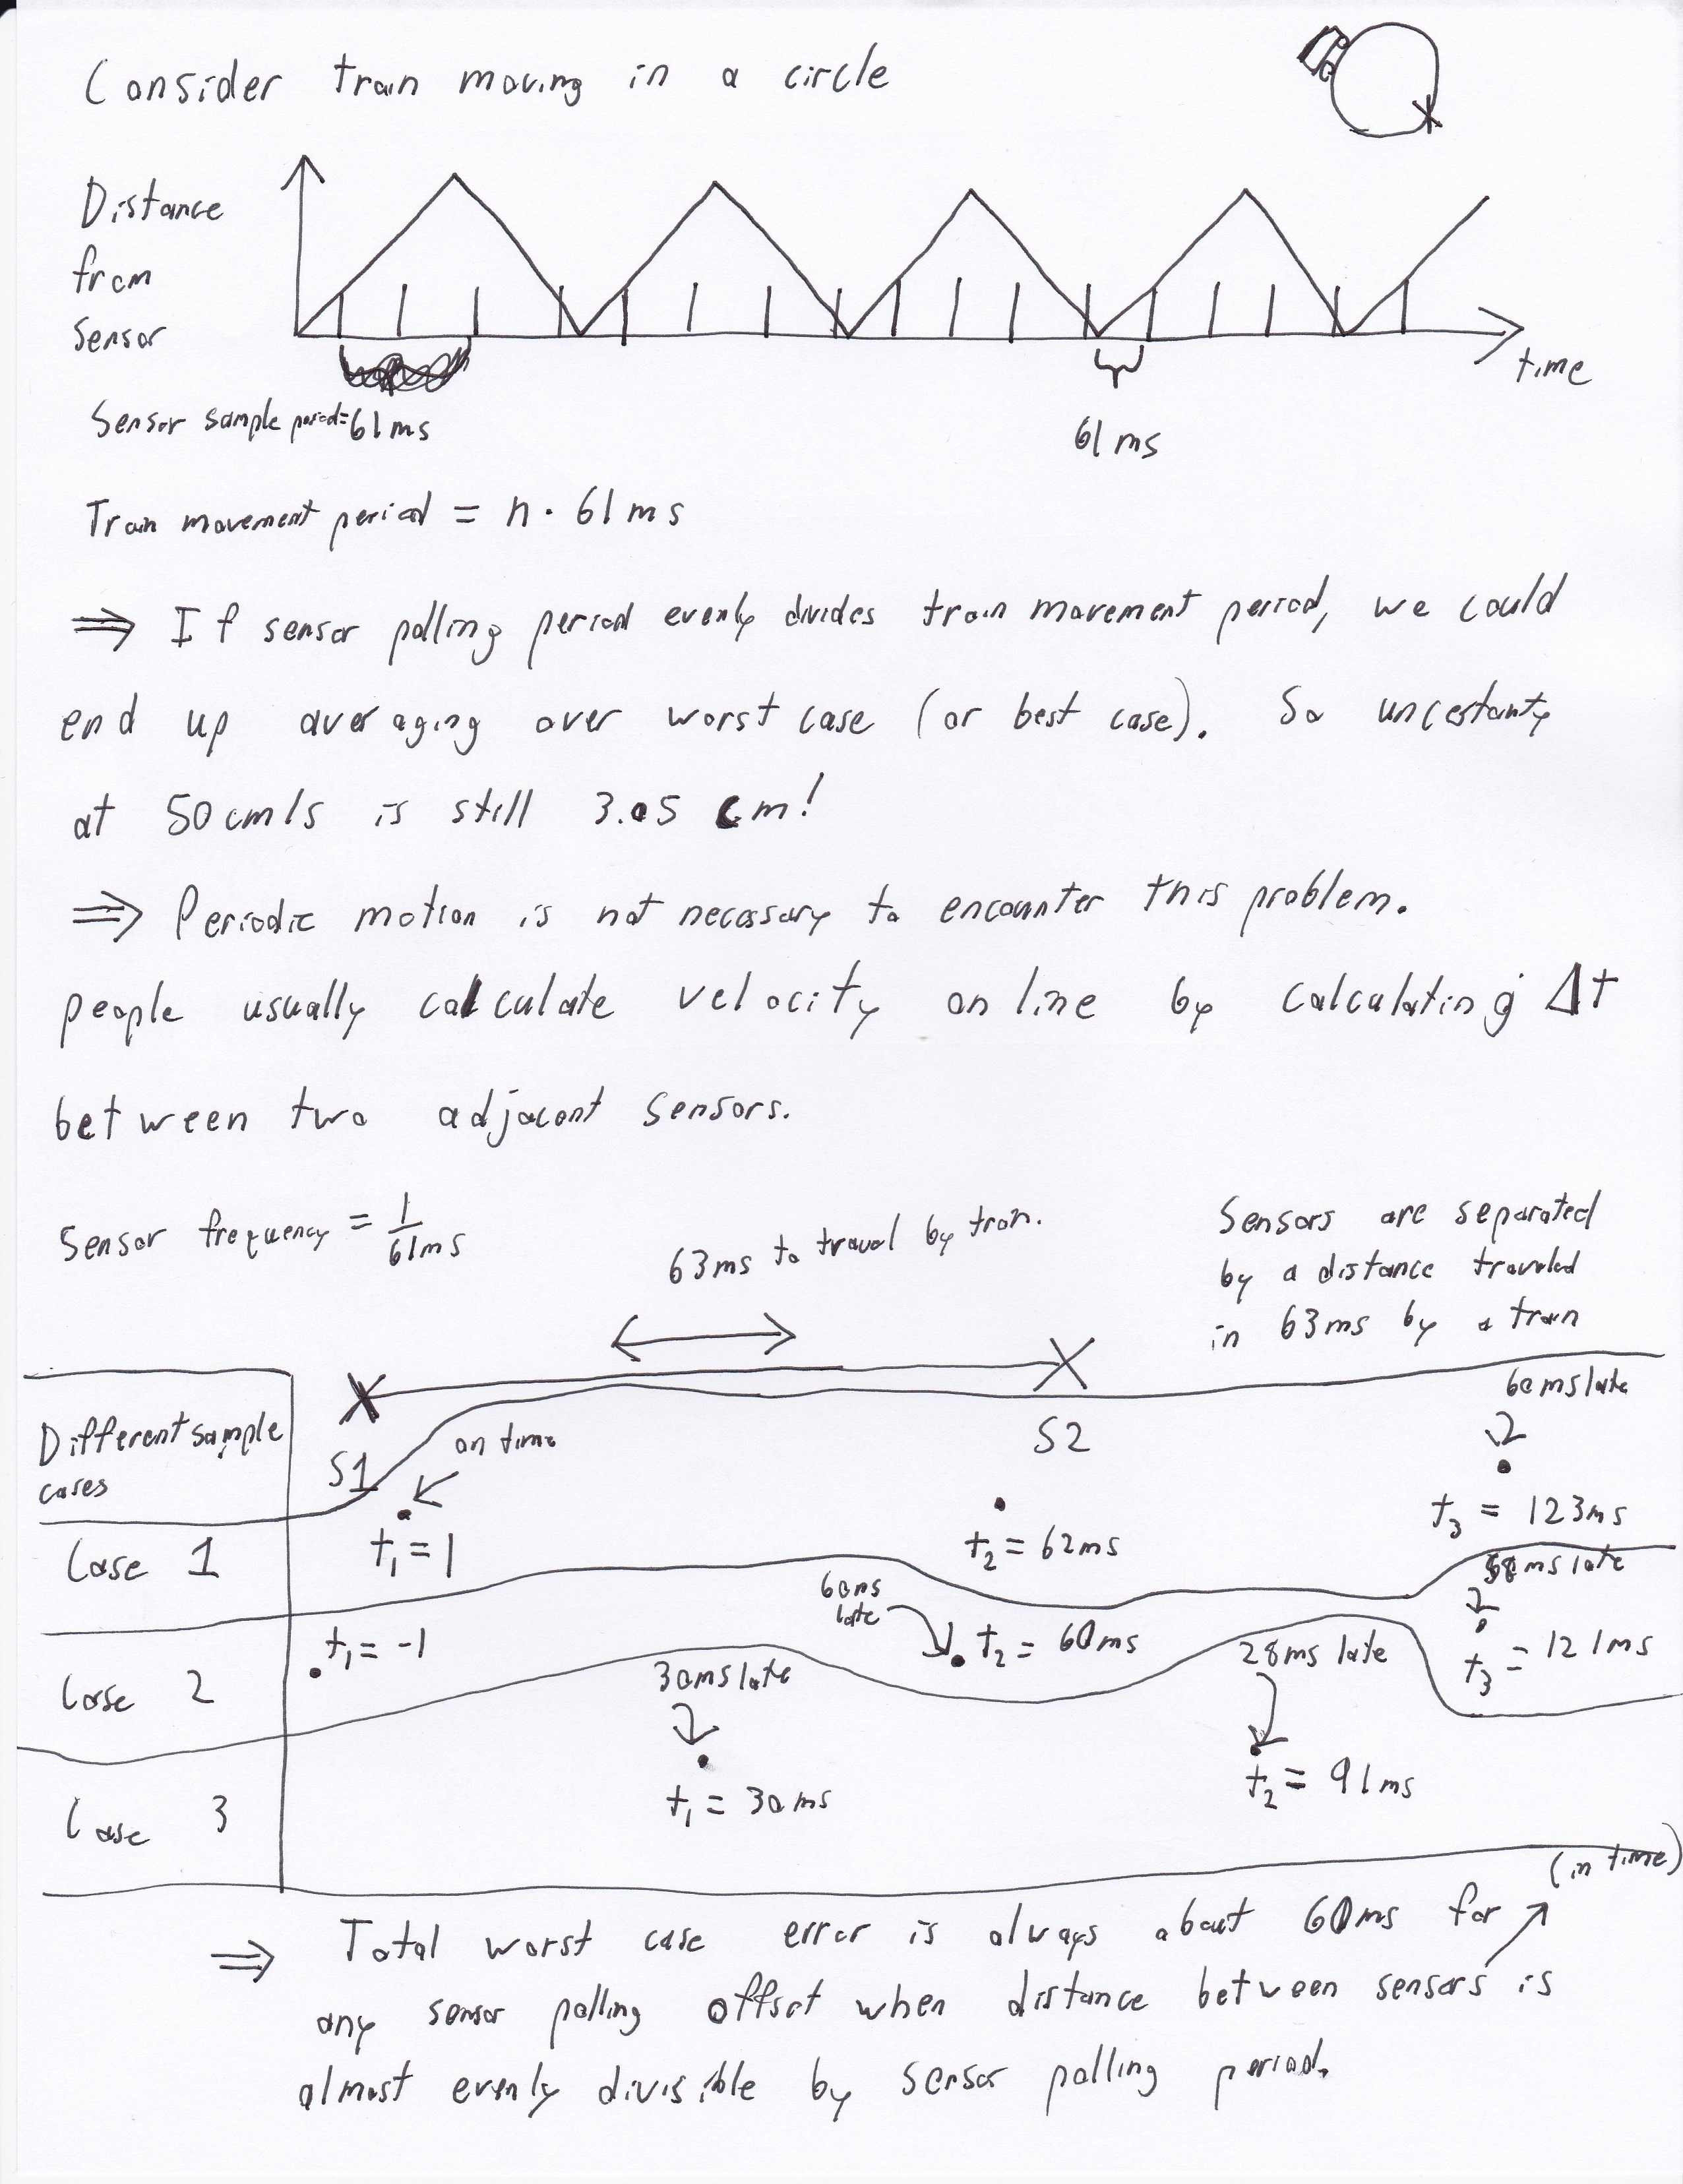 Consider train moving in a circle
Distance
from
sensor
time
Sensor sample period=61ms
61 ms
Train movement period = n · 61 ms
⇒ If sensor polling period evenly divides train movement period, we could
end up averaging over worst case (or best case). So uncertanty
at 50cm/s is still 3.05 cm!
⇒ Periodic motion is not necessary to encounter this problem.
people usually calculate velocity online by calculating Δt
between two adjacent sensors.
Sensor frequency = 1/61ms
63ms to travel by train.
Sensors are separated
by a distance traveled
in 63ms by a train
Different sample
cases
S1
on time
S2
60ms late
Case 1
t₁ = 1
t₂ = 62ms
t₃ = 123ms
Case 2
t₁ = -1
60ms
late
t₂ = 60ms
58ms late
t₃ = 121ms
Case 3
30ms late
t₁ = 30ms
28ms late
t₂ = 91ms
(in time)
⇒ Total worst case error is always about 60ms for
any sensor polling offset when distance between sensors is
almost evenly divisible by sensor polling period.